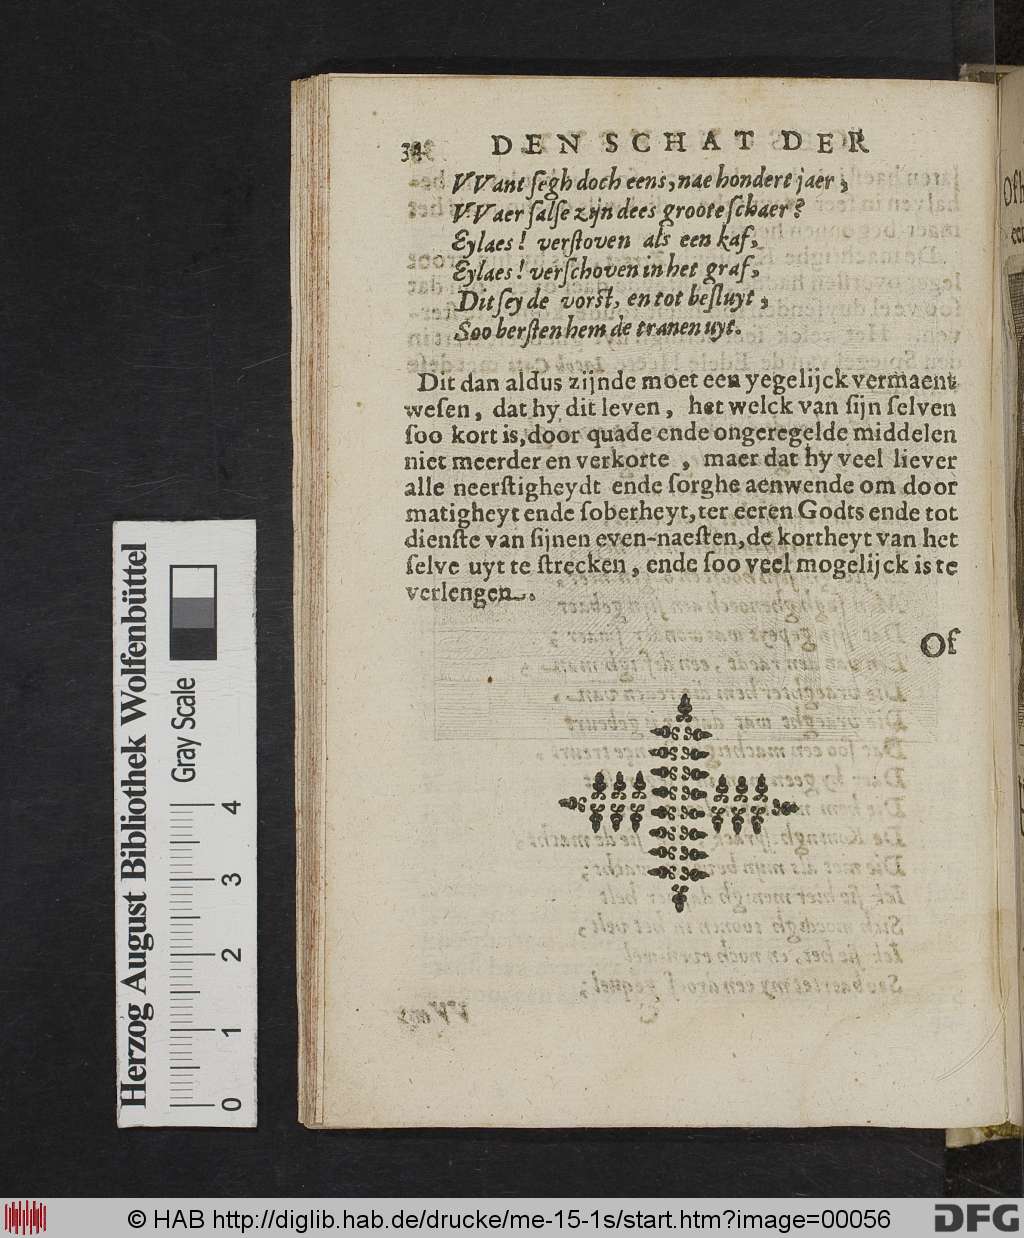 DEN SCHAT DER
VVant ſegh doch eens, nae hondert jaer,
VVaer ſalſe zijn dees groote ſchaer?
Eylaes! verſtoven als een kaf,
Eylaes! verſchoven in het graf,
Dit ſeyde vorſt, en tot beſluyt,
Soo berſten hem de tranen uyt.
Dit dan aldus zijnde moet een yegelijck vermaent
weſen, dat hy dit leven, het welck van ſijn ſelven
ſoo kort is, door quade ende ongeregelde middelen
niet meerder en verkorte, maer dat hy veel liever
alle neerſtigheydt ende ſorghe aenwende om door
matigheyt ende ſoberheyt, ter eeren Godts ende tot
dienſte van ſijnen even-naeſten, de kortheyt van het
ſelve uyt te ſtrecken, ende ſoo veel mogelijck is te
verlengen.
Of
Herzog August Bibliothek Wolfenbüttel
Gray Scale
0 1 2 3 4
© HAB http://diglib.hab.de/drucke/me-15-1s/start.htm?image=00056
DFG